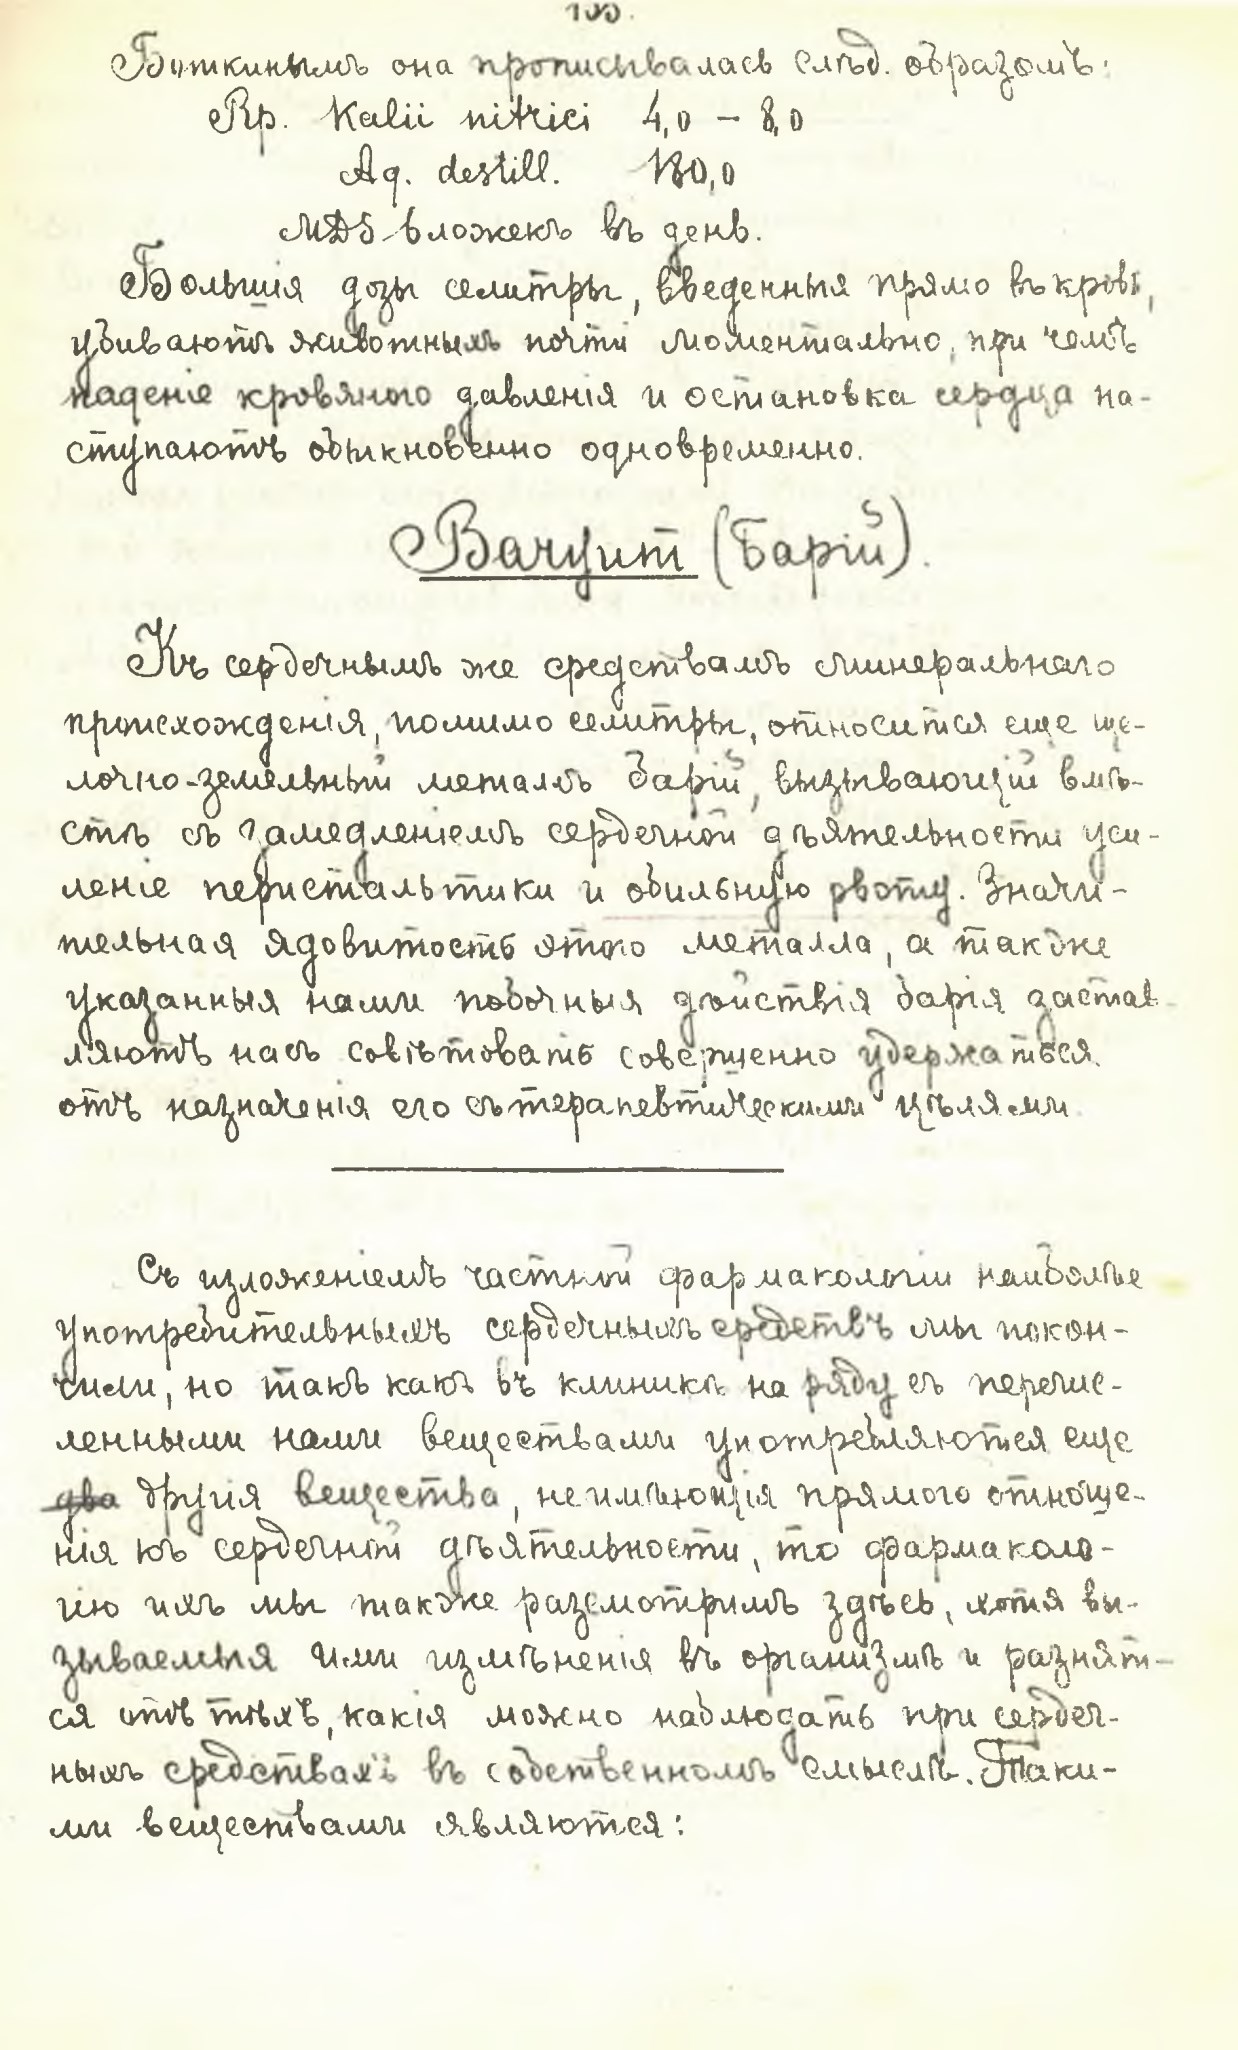 Боткинымъ она прописывалась слѣд. образомъ:
Rp. Kalii nitrici 4,0 – 8,0
Aq. destill. 180,0
MDS 6 ложекъ въ день.
Большія дозы селитры, введенныя прямо въ кровь,
убиваютъ животныхъ почти моментально, при чемъ
паденіе кровяного давленія и остановка сердца на-
ступаютъ обыкновенно одновременно.
(Барій).
Къ сердечнымъ же средствамъ минеральнаго
происхожденія, помимо селитры, относится еще ще-
лочно-земельный металлъ барій, вызывающій вмѣ-
стѣ съ замедленіемъ сердечной дѣятельности уси-
леніе перистальтики и обильную рвоту. Значи-
тельная ядовитость этого металла, а также
указанныя нами побочныя дѣйствія барія застав-
ляютъ насъ совѣтовать совершенно удержаться
отъ назначенія его съ терапевтическими цѣлями.
Съ изложеніемъ частной фармакологіи наиболѣе
употребительныхъ сердечныхъ средствъ мы покон-
чили, но такъ какъ въ клиникѣ на ряду съ перечис-
ленными нами веществами употребляются еще
два другія вещества, неимѣющія прямого отноше-
нія къ сердечной дѣятельности, то фармаколо-
гію ихъ мы также разсмотримъ здѣсь, хотя вы-
зываемыя ими измѣненія въ организмѣ и разнят-
ся отъ тѣхъ, какія можно наблюдать при сердеч-
ныхъ средствахъ въ собственномъ смыслѣ. Таки-
ми веществами являются: